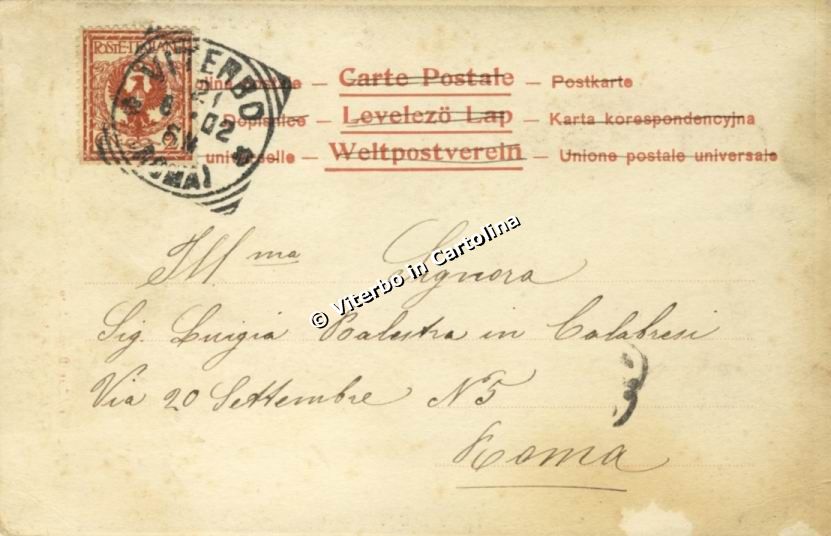 POSTE ITALIANE
VITERBO
6 02
(ROMA)
Carte Postale — Postkarte
Dopisnice — Levelezö Lap — Karta korespondencyjna
universelle — Weltpostverein — Unione postale universale
Ill ma Signora
Sig. Luigia Balestra in Calabresi
Via 20 Settembre N 5
Roma
© Viterbo in Cartolina